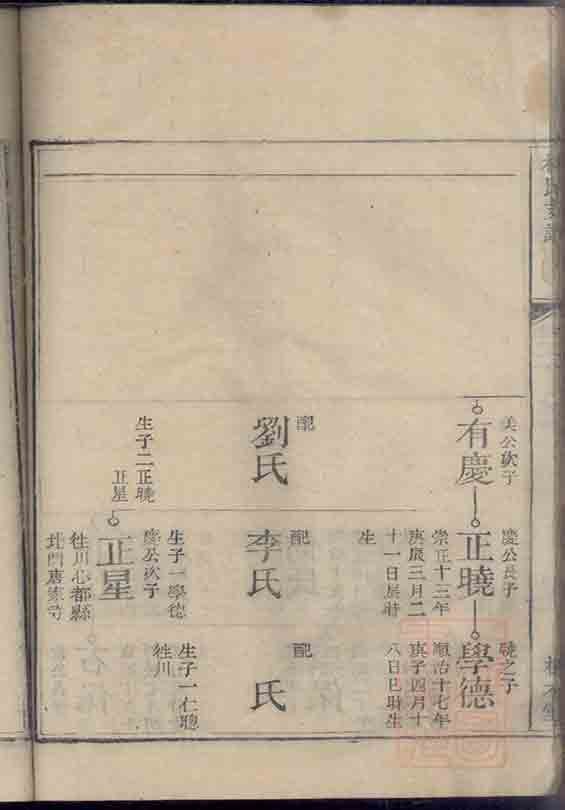 美公次子
有慶
配
劉氏
生子二正曉
正星
慶公長子
正曉
崇正十三年
庚辰三月二
十一日辰時
生
配
李氏
生子一學德
慶公次子
正星
徃川心都縣
北門唐家寺
曉之子
學德
順治十七年
庚子四月十
八日巳時生
配
氏
生子一仁聰
徃川